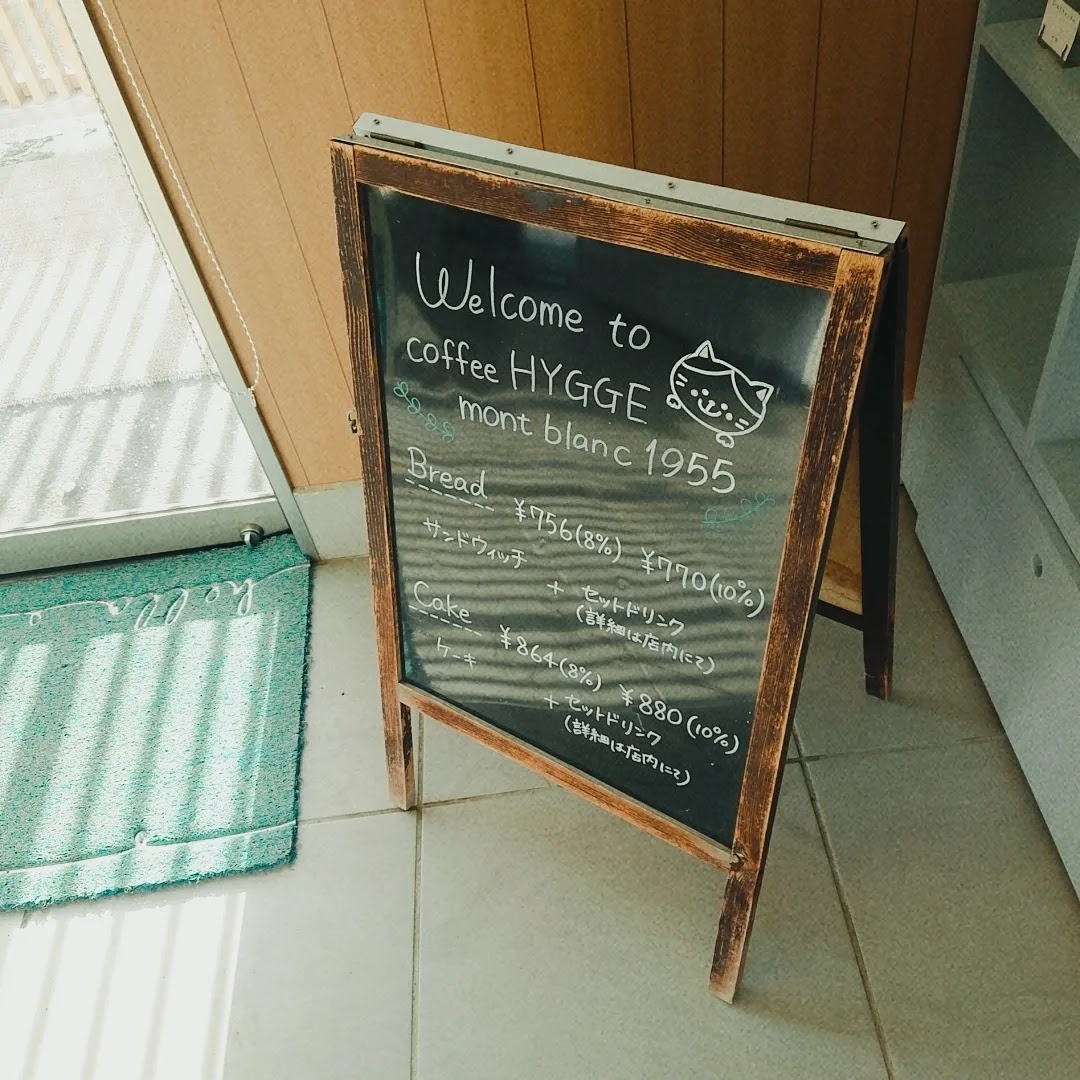 Welcome to
coffee HYGGE
mont blanc 1955
Bread
¥756(8%) ¥770(10%)
サンドウィッチ
+ セットドリンク
(詳細は店内にて)
Cake
¥864(8%) ¥880(10%)
ケーキ
+ セットドリンク
(詳細は店内にて)
holla